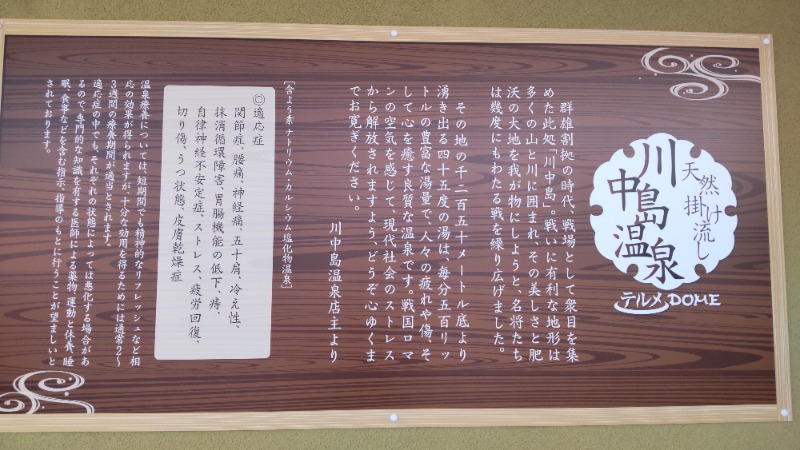 天然掛け流し
川中島温泉
テルメDOME
群雄割拠の時代、戦場として衆目を集
めた此処「川中島」。戦いに有利な地形は
多くの山と川に囲まれ、その美しさと肥
沃の大地を我が物にしようと、名将たち
は幾度にもわたる戦を繰り広げました。
その地の千二百五十メートル底より
湧き出る四十五度の湯は、毎分五百リッ
トルの豊富な湯量で、人々の疲れや傷、そ
して心を癒す良質な温泉です。戦国ロマ
ンの空気を感じて、現代社会のストレス
から解放されますよう、どうぞ心ゆくま
でお寛ぎください。
川中島温泉店主より
[含よう素 ナトリウム・カルシウム塩化物温泉]
◎適応症
関節症、腰痛、神経痛、五十肩、冷え性、
抹消循環障害、胃腸機能の低下、痔、
自律神経不安定症、ストレス、疲労回復、
切り傷、うつ状態、皮膚乾燥症
温泉療養については、短期間でも精神的なリフレッシュなど相
応の効果が得られますが、十分な効用を得るためには通常2〜
3週間の療養期間が適当とされます。
適応症の中でも、それぞれの状態によっては悪化する場合があ
るので、専門的な知識を有する医師による薬物、運動と休養、睡
眠、食事などを含む指示、指導のもとに行うことが望ましいと
されております。